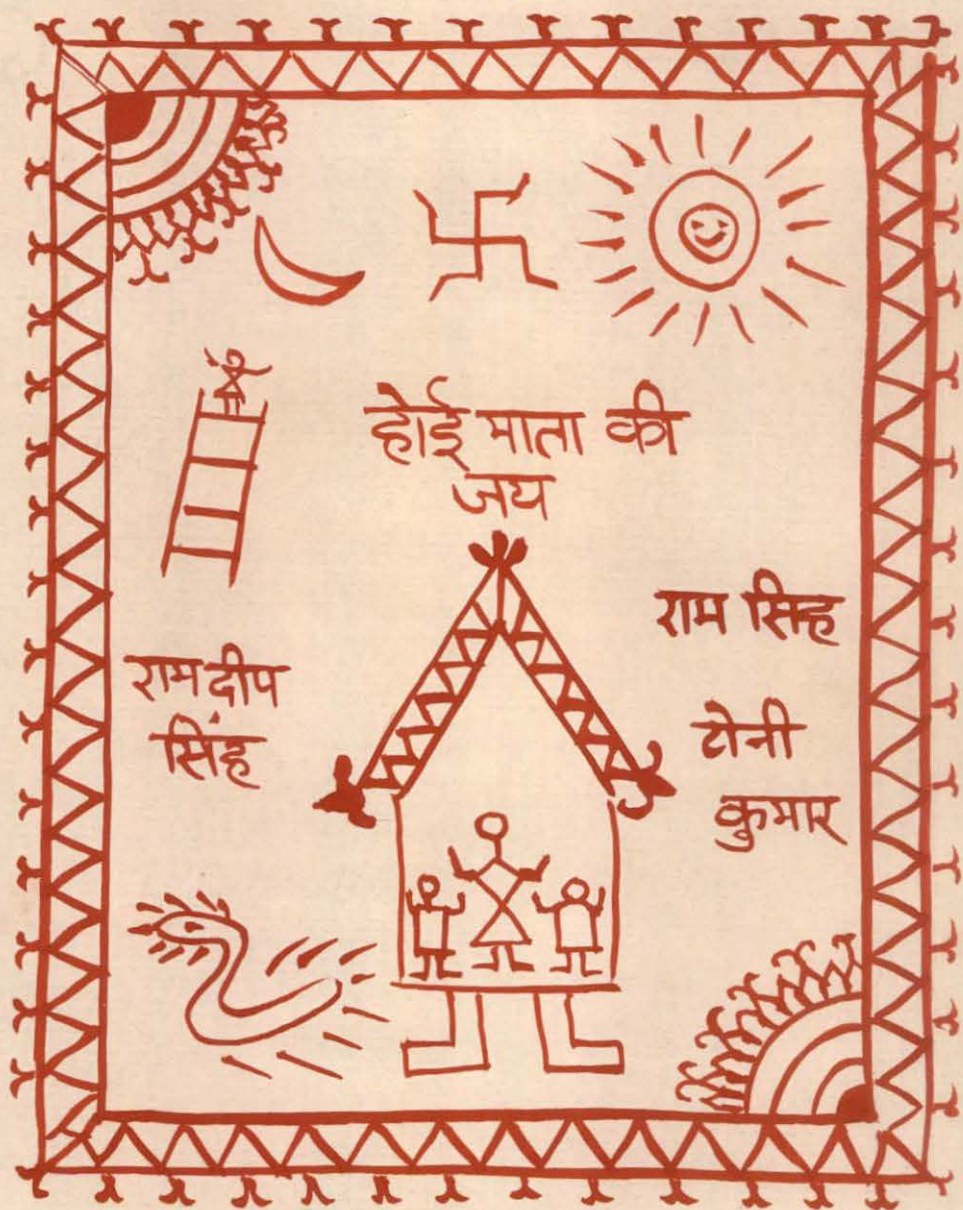 होई माता की
जय
राम सिंह
रामदीप
सिंह
टोनी
कुमार